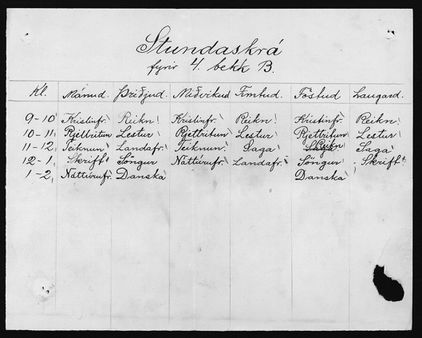 Stundaskrá
fyrir 4. bekk B.
Kl. Mánud. Þriðjud. Miðvikud. Fimtud. Föstud. Laugard.
9-10 Kristinfr. Reikn. Kristinfr. Reikn. Kristinfr. Reikn.
10-11. Rjettritun Lestur Rjettritun Lestur Rjettritun Lestur
11-12. Teiknun. Landafr. Teiknun. Saga Reikn. Saga
12-1. Skrift. Söngur Náttúrufr. Landafr. Söngur Skrift.
1-2. Náttúrufr. Danska Danska